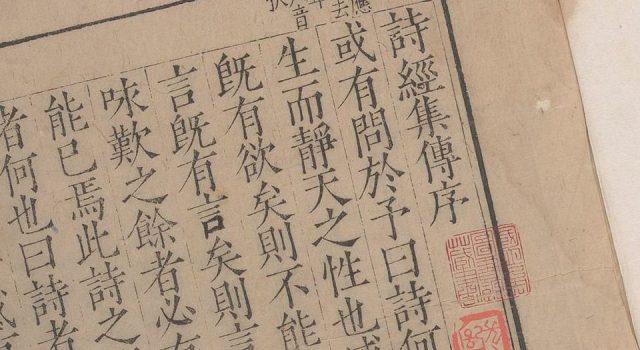 詩經集傳序
或有問於予曰詩何
生而靜天之性也感
旣有欲矣則不能
言旣有言矣則言
咏歎之餘者必有
能已焉此詩之
者何也曰詩者